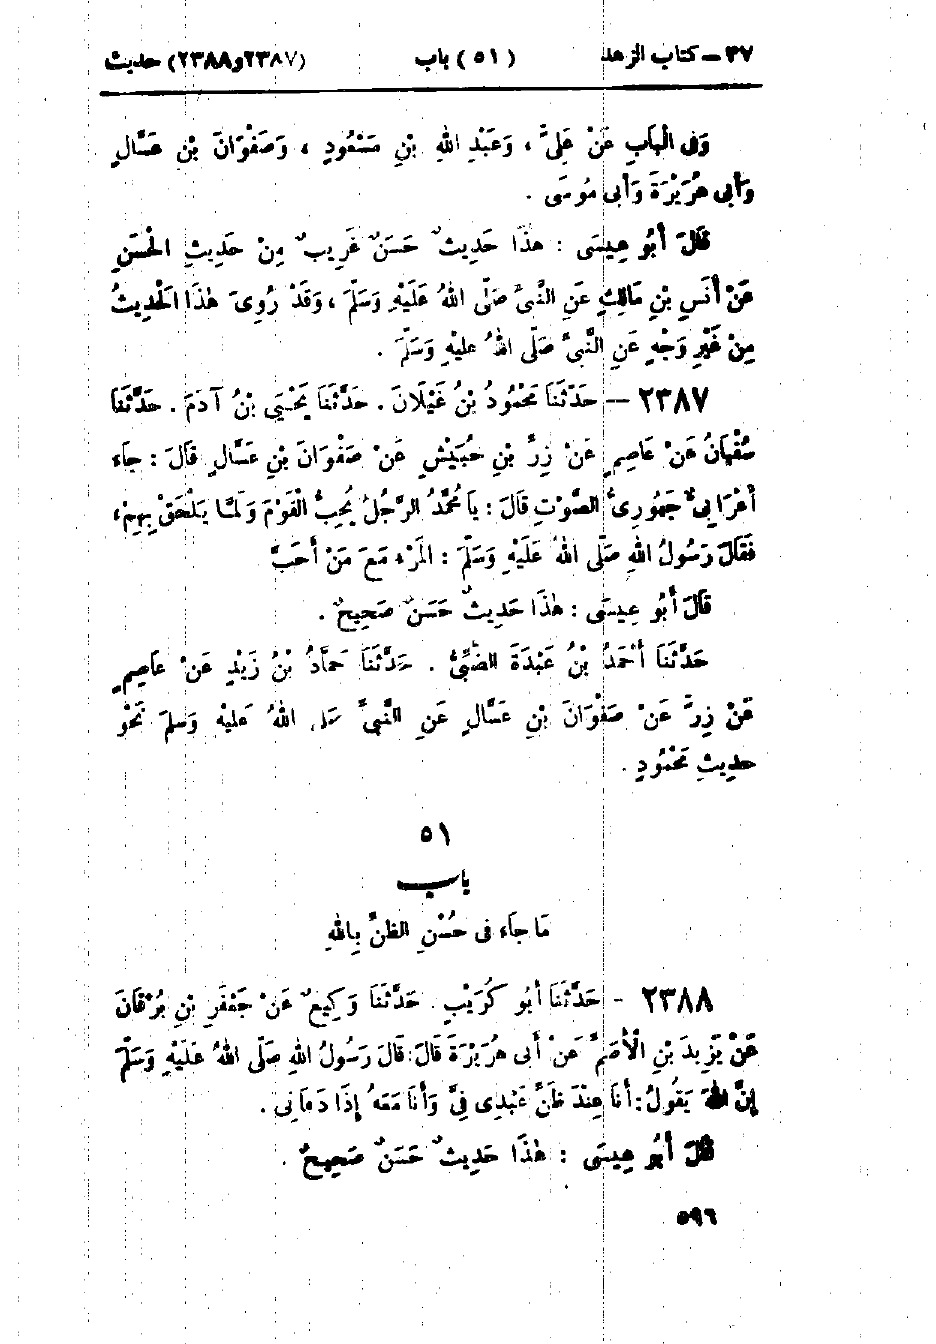 ٣٧ – كتاب الزهد (٥١) باب (٢٣٨٧و٢٣٨٨) حديث
وَفِى الْبَابِ عَنْ عَلِىٍّ ، وَعَبْدِ اللهِ بْنِ مَسْعُودٍ ، وَصَفْوَانَ بْنِ عَسَّالٍ
وَأَبِى هُرَيْرَةَ وَأَبِى مُوسَى .
قَالَ أَبُو عِيسَى : هٰذَا حَدِيثٌ حَسَنٌ غَرِيبٌ مِنْ حَدِيثِ الْحَسَنِ
عَنْ أَنَسِ بْنِ مَالِكٍ عَنِ النَّبِىِّ صَلَّى اللهُ عَلَيْهِ وَسَلَّمَ ، وَقَدْ رُوِىَ هٰذَا الْحَدِيثُ
مِنْ غَيْرِ وَجْهٍ عَنِ النَّبِىِّ صَلَّى اللهُ عَلَيْهِ وَسَلَّمَ .
٢٣٨٧ — حَدَّثَنَا مَحْمُودُ بْنُ غَيْلَانَ . حَدَّثَنَا يَحْيَى بْنُ آدَمَ . حَدَّثَنَا
سُفْيَانُ عَنْ عَاصِمٍ عَنْ زِرِّ بْنِ حُبَيْشٍ عَنْ صَفْوَانَ بْنِ عَسَّالٍ قَالَ : جَاءَ
أَعْرَابِىٌّ جَهْوَرِىُّ الصَّوْتِ قَالَ : يَا مُحَمَّدُ الرَّجُلُ يُحِبُّ الْقَوْمَ وَلَمَّا يَلْحَقْ بِهِمْ ،
فَقَالَ رَسُولُ اللهِ صَلَّى اللهُ عَلَيْهِ وَسَلَّمَ : الْمَرْءُ مَعَ مَنْ أَحَبَّ
قَالَ أَبُو عِيسَى : هٰذَا حَدِيثٌ حَسَنٌ صَحِيحٌ .
حَدَّثَنَا أَحْمَدُ بْنُ عَبْدَةَ الضَّبِّىُّ . حَدَّثَنَا حَمَّادُ بْنُ زَيْدٍ عَنْ عَاصِمٍ
عَنْ زِرٍّ عَنْ صَفْوَانَ بْنِ عَسَّالٍ عَنِ النَّبِىِّ صَلَّى اللهُ عَلَيْهِ وَسَلَّمَ نَحْوَ
حَدِيثِ مَحْمُودٍ .
٥١
باب
مَا جَاءَ فِى حُسْنِ الظَّنِّ بِاللهِ
٢٣٨٨ - حَدَّثَنَا أَبُو كُرَيْبٍ . حَدَّثَنَا وَكِيعٌ عَنْ جَعْفَرِ بْنِ بُرْقَانَ
عَنْ يَزِيدَ بْنِ الْأَصَمِّ عَنْ أَبِى هُرَيْرَةَ قَالَ : قَالَ رَسُولُ اللهِ صَلَّى اللهُ عَلَيْهِ وَسَلَّمَ
إِنَّ اللهَ يَقُولُ : أَنَا عِنْدَ ظَنِّ عَبْدِى فِىَّ وَأَنَا مَعَهُ إِذَا دَعَانِى .
قَالَ أَبُو عِيسَى : هٰذَا حَدِيثٌ حَسَنٌ صَحِيحٌ .
٥٩٦